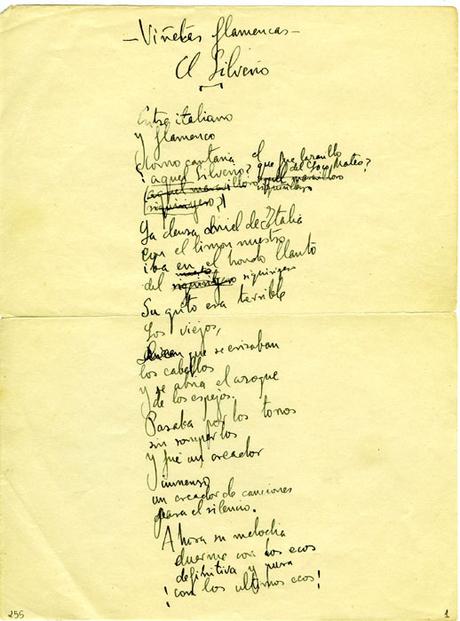 — Viñetas flamencas —
El Silverio
Entre italiano
y flamenco
¿como cantaria el
aquel Silverio? que fue lazarillo del loco Mateo?
(aquel maravilloso
siguiriyero?)
La densa miel de Italia
con el limon nuestro
iba en el hondo llanto
del siguiriyero siguiriyero
Su grito era terrible
Los viejos,
dicen que se erizaban
los cabellos
y se abria el azogue
de los espejos.
Pasaba por los tonos
sin romperlos
y fué un creador
inmenso
un creador de canciones
para el silencio.
Ahora su melodia
duerme con los ecos
definitiva y pura
¡con los ultimos ecos!
255
1